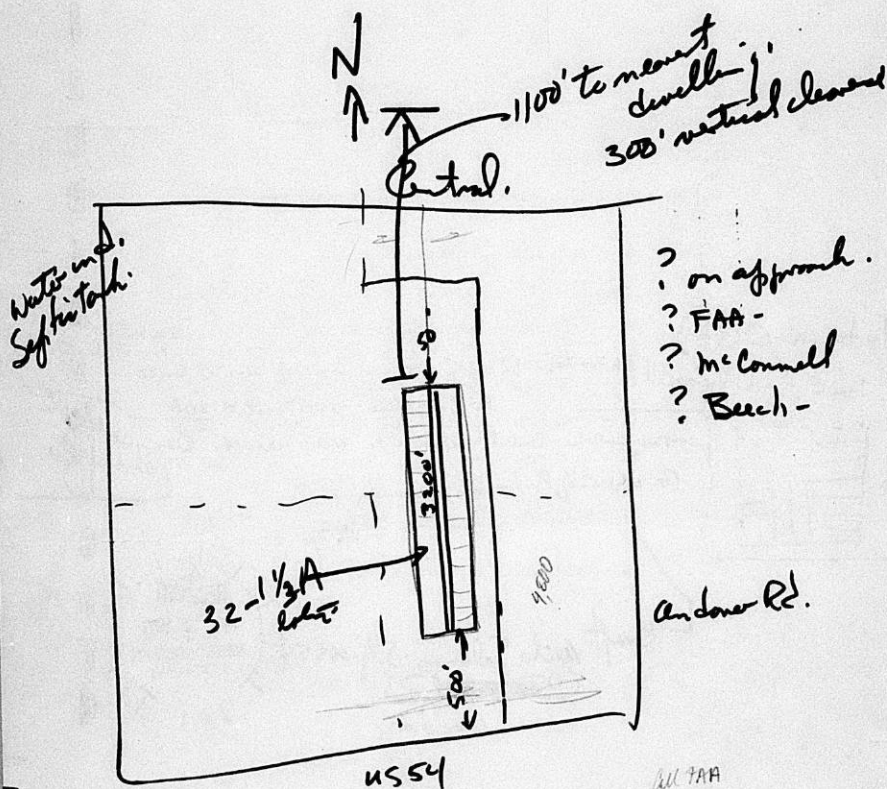 N
1100' to nearest
dwelling.
300' vertical
Central.
Water and.
Septic tank.
? on approach.
? FAA-
? McConnell
? Beech-
50'
3200'
32-1 1/3 A
lots.
4,800
Andover Rd.
50'
US54
Call FAA